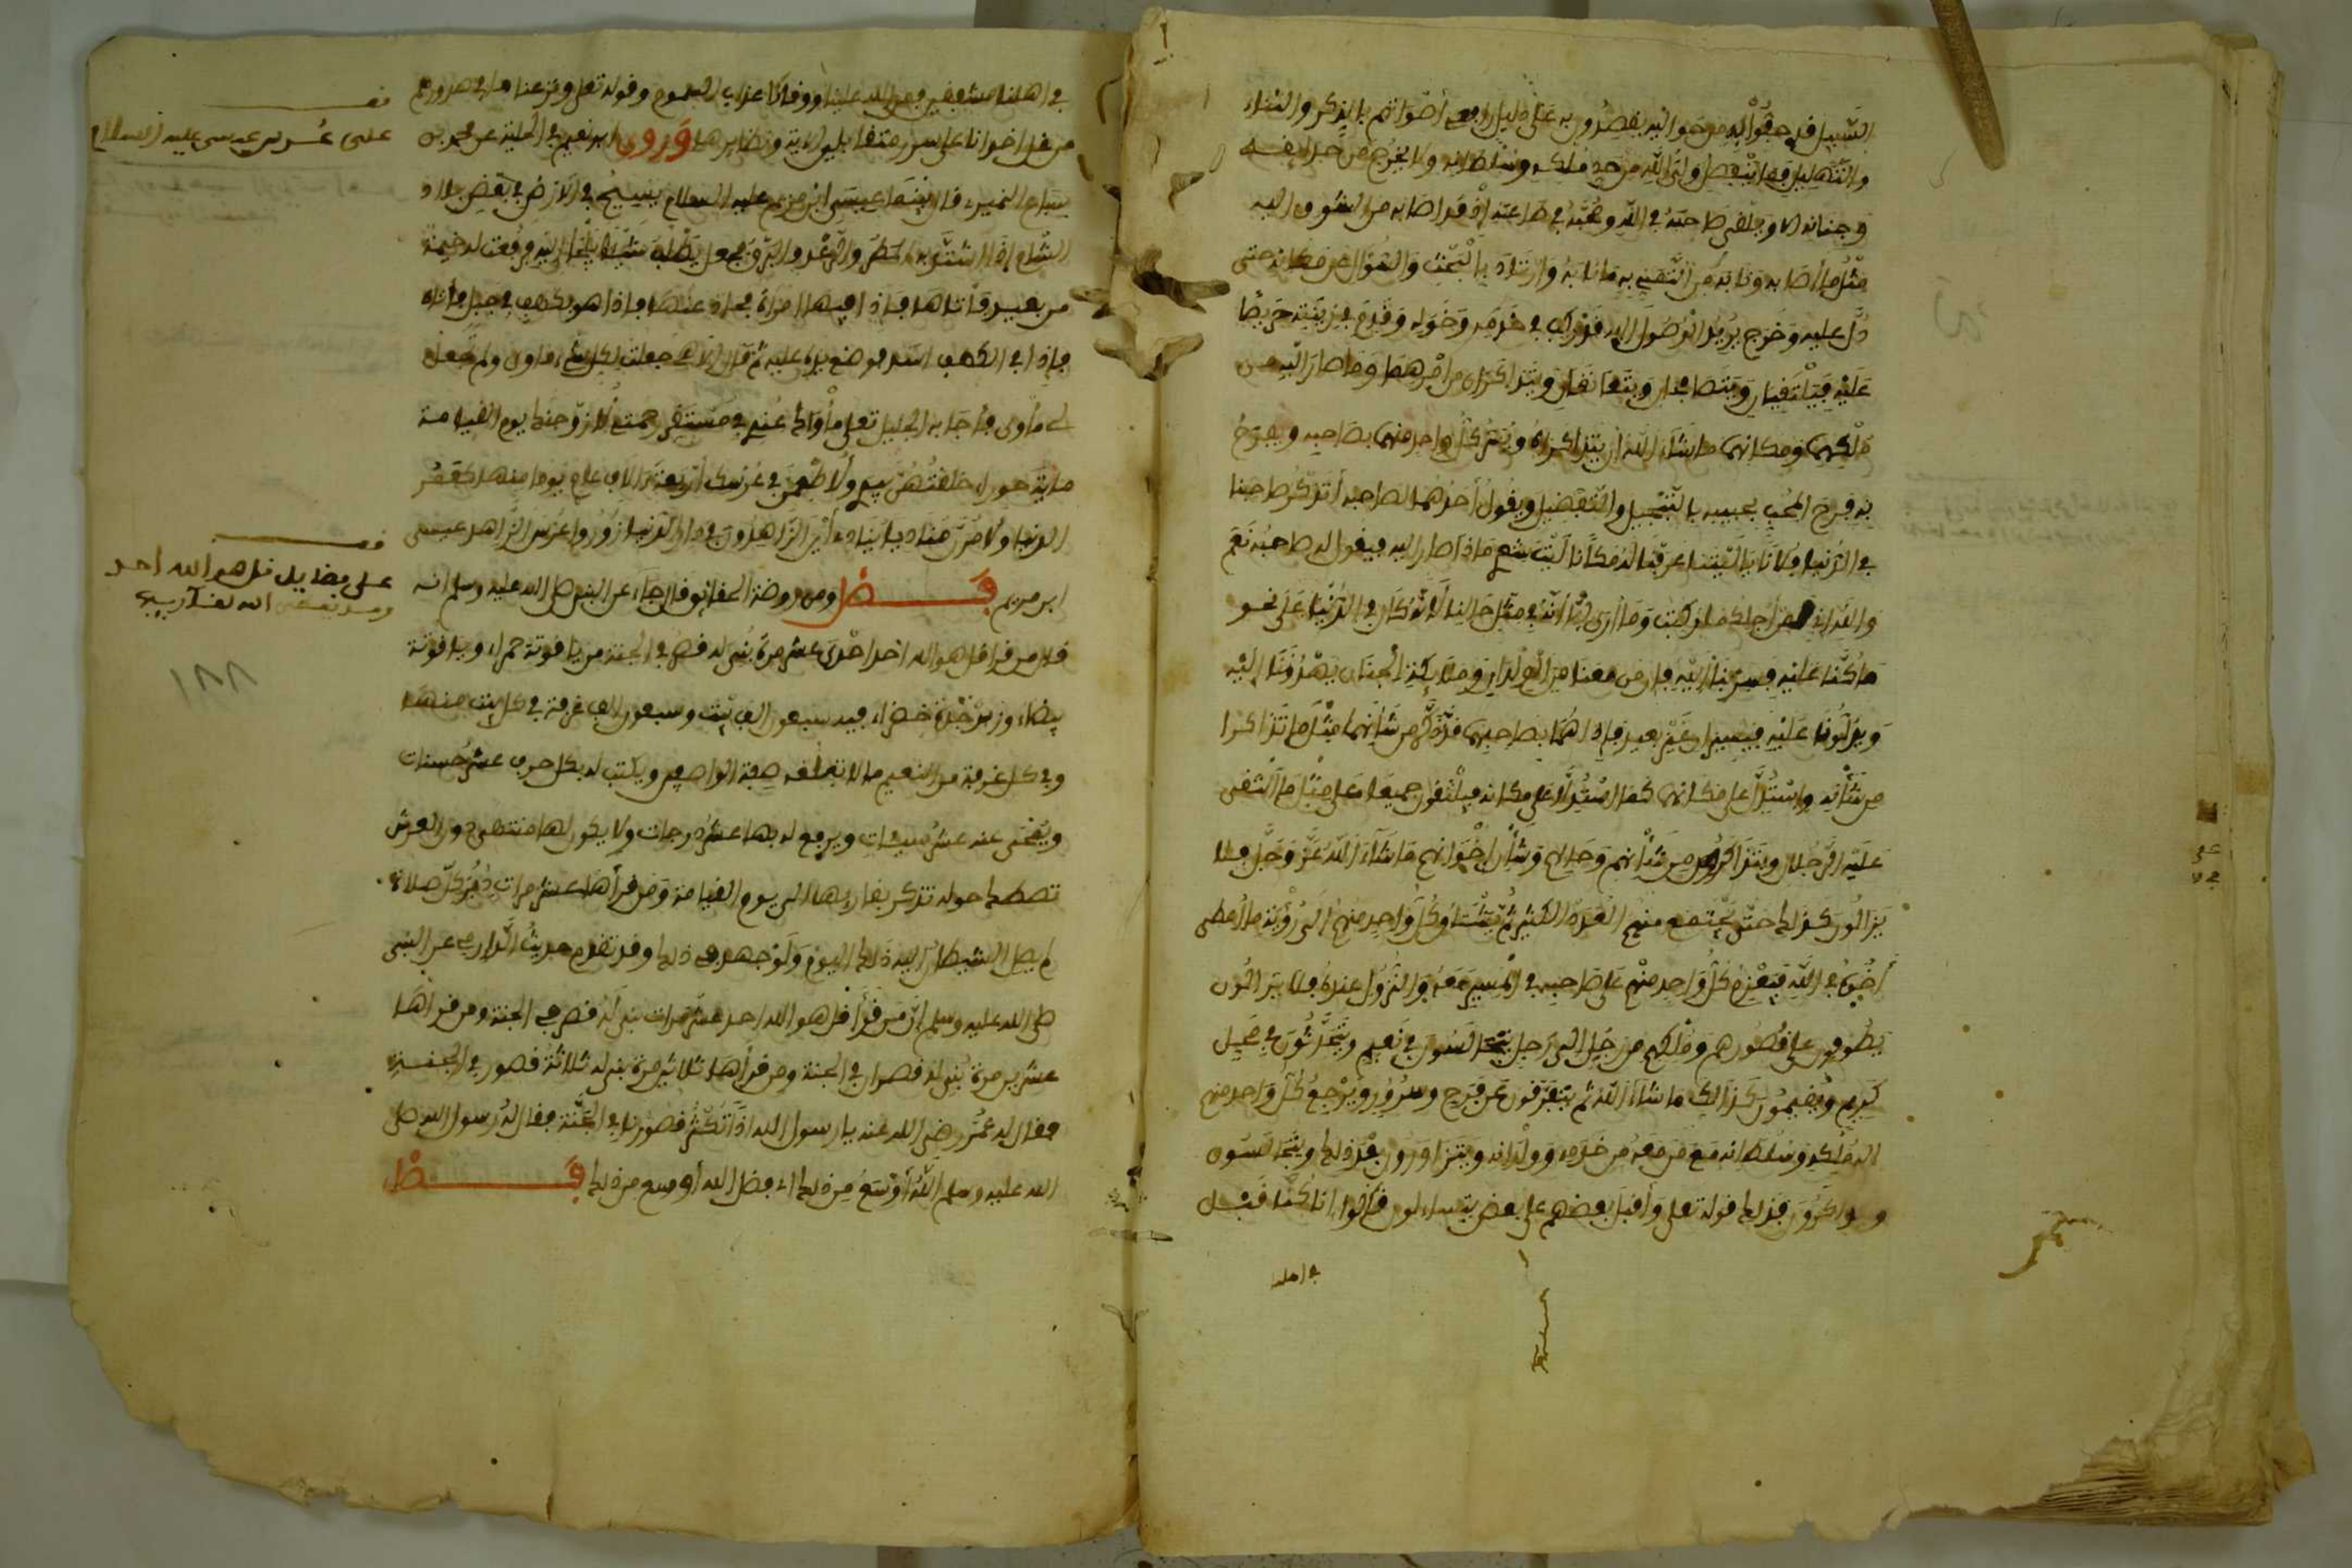 السبيل قد حفوا به من حوله يقصدون به على دليل رافعي أصواتهم بالذكر والثناء
والتهليل فما ينفصل ولي الله من حد ملكه وسلطانه ولا يخرج من حدائقه
وجنانه الا ويلقى صاحبه في الله ومحبه في طاعته إذ قد أصابه من الشوق اليه
مثل ما أصابه ونابه من التقنية ما نابه وازداد بالبحث والسؤال عن مكانه حتى
دل عليه وخرج يريد الوصول اليه فركب في خدمه وخوله وقدم في زينته حريصا
عليه فيلتقيان ويتصافحان ويتعانقان ويتذاكران من أمرهما وما صار اليه من
ملكهما ومكانهما ما شاء الله أن يتذاكراه ويسر كل واحد منهما بصاحبه ويفرح
به فرح المحب بحبيبه بالتبجيل والتفضيل ويقول أحدهما لصاحبه أتذكر صاحبنا
في الدنيا فلانا يا ليتنا عرفنا له مكانا ليت شعري ماذا صار اليه فيقول له صاحبه نعم
والله اني من أجله ركبت وما أرى الا أنه في مثل حالنا لانه كان في الدنيا على نحو
ما كنا عليه فسر بنا اليه فان من معنا من الولدان وملائكة الجنان يهدوننا اليه
ويدلونا عليه فيسيران غير بعيد فإذا هما بصاحبهما قد ذكر من شأنهما مثل ما تذاكرا
من شأنه واستدل على مكانهما كما استدلا على مكانه فيلتقون جميعا على مثل ما التقى
عليه الرجلان ويتذاكرون من شأنهم وحالهم وشأن إخوانهم ما شاء الله عز وجل فلا
يزالون كذلك حتى يجتمع منهم العدة الكثير ثم يشتاق كل واحد منهم الى رؤية ما أعطى
أخوه في الله فيعزم كل واحد منهم على صاحبه في المسير معه والنزول عنده فلا يزالون
يطوفون على قصورهم وملكهم من رجل الى رجل يتحدثون في نعيم ويتحدثون في جميل
كريم ويقيمون كذلك ما شاء الله ثم يتفرقون عن فرح وسرور ويرجع كل واحد منهم
الى ملكه وسلطانه مع من معه من خدمه وولدانه ويتزاورون بعد ذلك ويتجالسون
ويتذاكرون فذلك قوله تعلى وأقبل بعضهم على بعض يتساءلون قالوا انا كنا قبل
في اهلنا
في اهلنا مشفقين فمن الله علينا ووقانا عذاب السموم وقوله تعلى ونزعنا ما في صدورهم
من غل اخوانا على سرر متقابلين الاية ونظايرها وروى ابو نعيم في الحلية عن محمد بن
سباع النميري قال بينما عيسى ابن مريم عليه السلام يسيح في الارض في بعض بلاد
الشام إذ اشتد به المطر والرعد والبرق فجعل يطلب شيئا يلجأ اليه فرفعت له خيمة
من بعيد فأتاها فإذا فيها امرأة فحاد عنها فإذا هو بكهف في جبل فأتاه
فإذا في الكهف أسد فوضع يده عليه ثم قال إلاهي جعلت لكل شيء مأوى ولم تجعل
لي مأوى فأجابه الجليل تعلى مأواك عندي في مستقر رحمتي لأزوجنك يوم القيامة
ماية حوراء خلقتهن بيدي ولأطعمن في عرسك أربعة ءالاف عام يوما منها كعمر
الدنيا ولآمرن مناديا ينادي أين الزاهدون في دار الدنيا زوروا عرس الزاهد عيسى
ابن مريم فصل ومن روضة الحقائق قال جاء عن النبي صلى الله عليه وسلم انه
قال من قرأ قل هو الله احد احدى عشر مرة بني له قصر في الجنة من ياقوتة حمراء وياقوتة
بيضاء وزبرجدة خضراء فيه سبعون الف بيت وسبعون الف غرفة في كل بيت منها
وفي كل غرفة من النعيم ما لا تبلغه صفة الواصفين ويكتب له بكل حرف عشر حسنات
ويمحى عنه عشر سيئات ويرفع له بها عشر درجات ولا يكون لها منتهى دون العرش
تصطك حوله تذكر بقاريها الى يوم القيامة ومن قرأها عشر مرات دبر كل صلاة
لم يصل الشيطان اليه ذلك اليوم ولو جهد في ذلك وقد تقدم حديث الدارمي عن النبي
صلى الله عليه وسلم ان من قرأ قل هو الله احد عشر مرات بني له قصر في الجنة ومن قرأها
عشرين مرة بني له قصران في الجنة ومن قرأها ثلاثين مرة بني له ثلاثة قصور في الجنة
فقال له عمر رضي الله عنه يا رسول الله اذا تكثر قصورنا في الجنة فقال له رسول الله صلى
الله عليه وسلم الله أوسع من ذلك اي فضل الله أوسع من ذلك فصل
قف
على عرس عيسى عليه السلام
قف
على فضايل قل هو الله احد